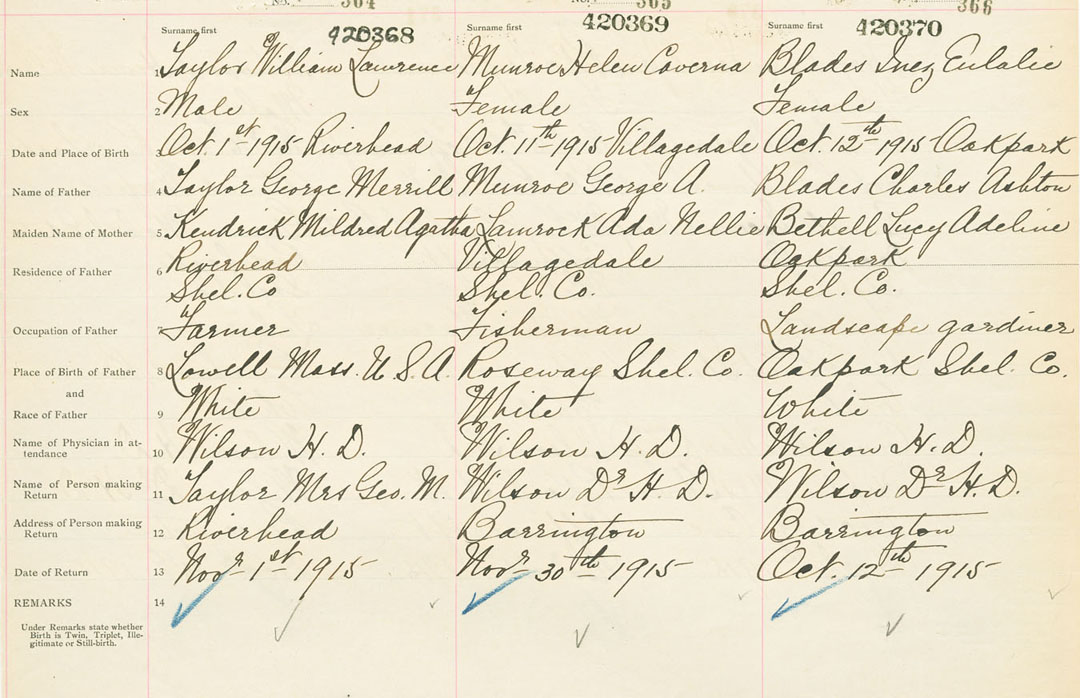 No. 364 No. 365 366
Surname first 420368 Surname first 420369 Surname first 420370
Name 1 Taylor William Lawrence Munroe Helen Caverna Blades Inez Eulalie
Sex 2 Male Female Female
Date and Place of Birth 3 Oct. 1st 1915 Riverhead Oct. 11th 1915 Villagedale Oct. 12th 1915 Oakpark
Name of Father 4 Taylor George Merrill Munroe George A. Blades Charles Ashton
Maiden Name of Mother 5 Kendrick Mildred Agatha Lamrock Ada Nellie Bethell Lucy Adeline
Residence of Father 6 Riverhead Villagedale Oakpark
Shel. Co Shel. Co. Shel. Co.
Occupation of Father 7 Farmer Fisherman Landscape gardiner
Place of Birth of Father 8 Lowell Mass. U.S.A. Roseway Shel. Co. Oakpark Shel. Co.
and
Race of Father 9 White White White
Name of Physician in at-
tendance 10 Wilson H. D. Wilson H. D. Wilson H. D.
Name of Person making
Return 11 Taylor Mrs Geo. M. Wilson Dr H. D. Wilson Dr H. D.
Address of Person making
Return 12 Riverhead Barrington Barrington
Date of Return 13 Novr 1st 1915 Novr 30th 1915 Oct. 12th 1915
REMARKS 14
Under Remarks state whether
Birth is Twin, Triplet, Ille-
gitimate or Still-birth.